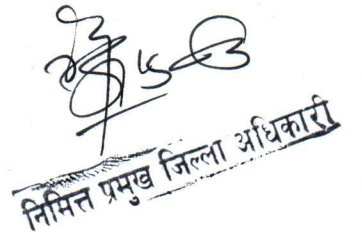 निमित्त प्रमुख जिल्ला अधिकारी